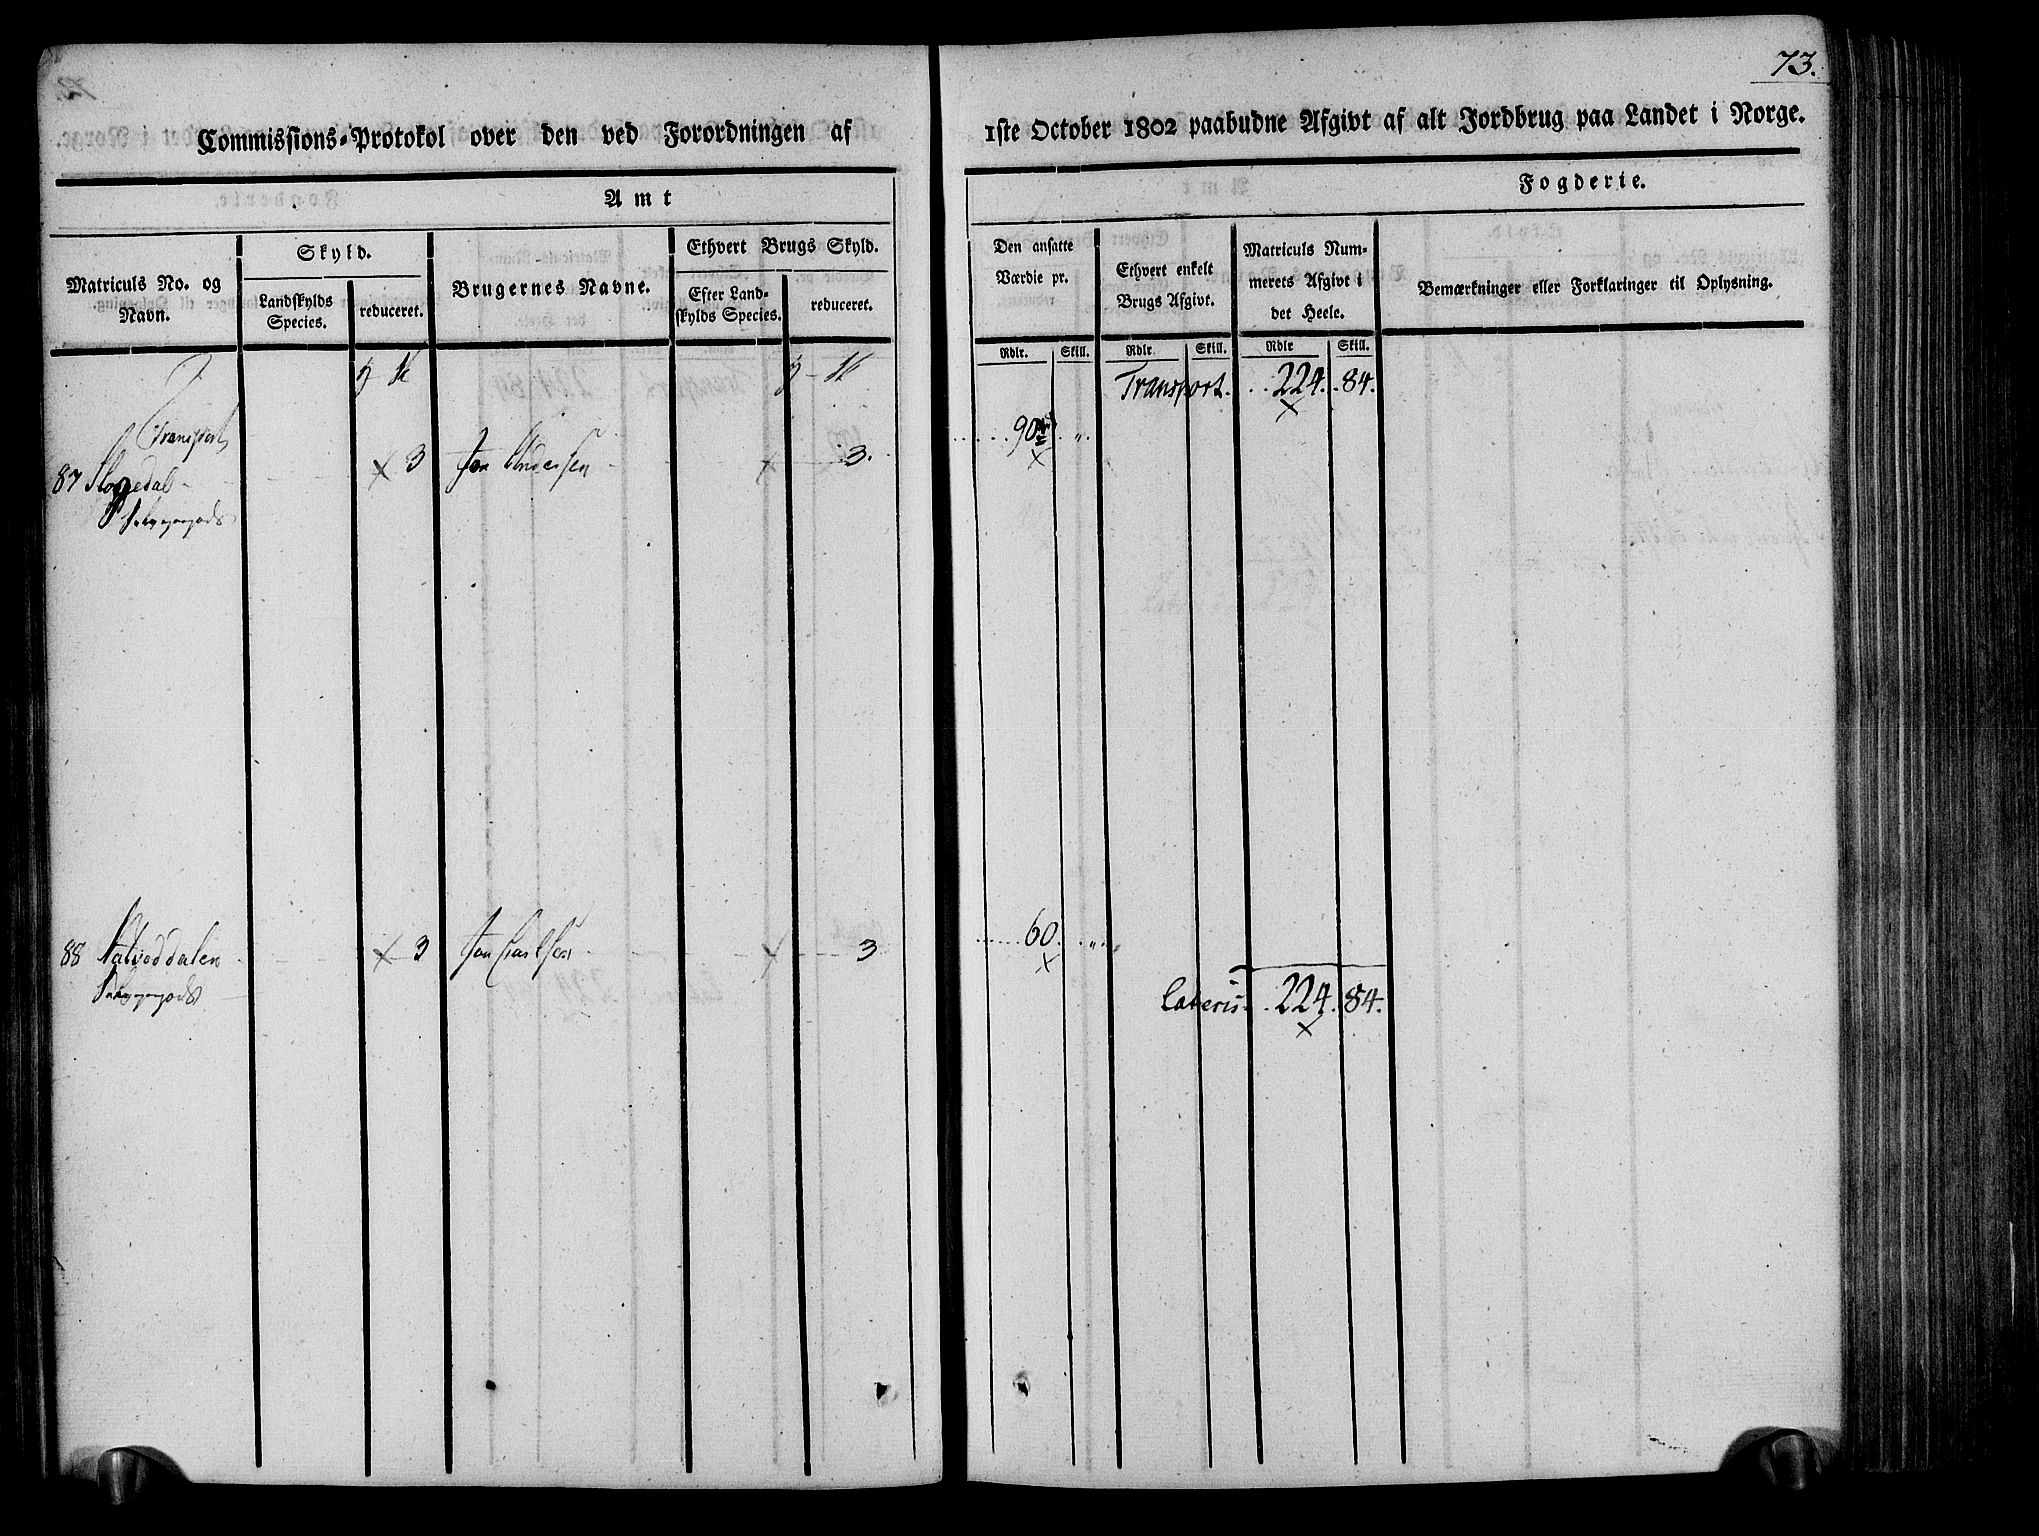 73.
Commissions-Protokol over den ved Forordningen af 1ste October 1802 paabudne Afgivt af alt Jordbrug paa Landet i Norge.
Amt Fogderie.
Matriculs No. og Navn.
Skyld.
Landskylds Species.
reduceret.
Brugernes Navne.
Ethvert Brugs Skyld.
Efter Landskylds Species.
reduceret.
Den ansatte Værdie pr.
Ethvert enkelt Brugs Afgivt.
Matriculs Nummerets Afgivt i det Heele.
Bemærkninger eller Forklaringer til Oplysning.
Rdlr. Skill. Rdlr. Skill. Rdlr. Skill.
Transport. 224. 84.
Transport
87 3 Jon Andersen 3. 90 „.
88 3 Jon 3 60. „.
Lateris. 224. 84.